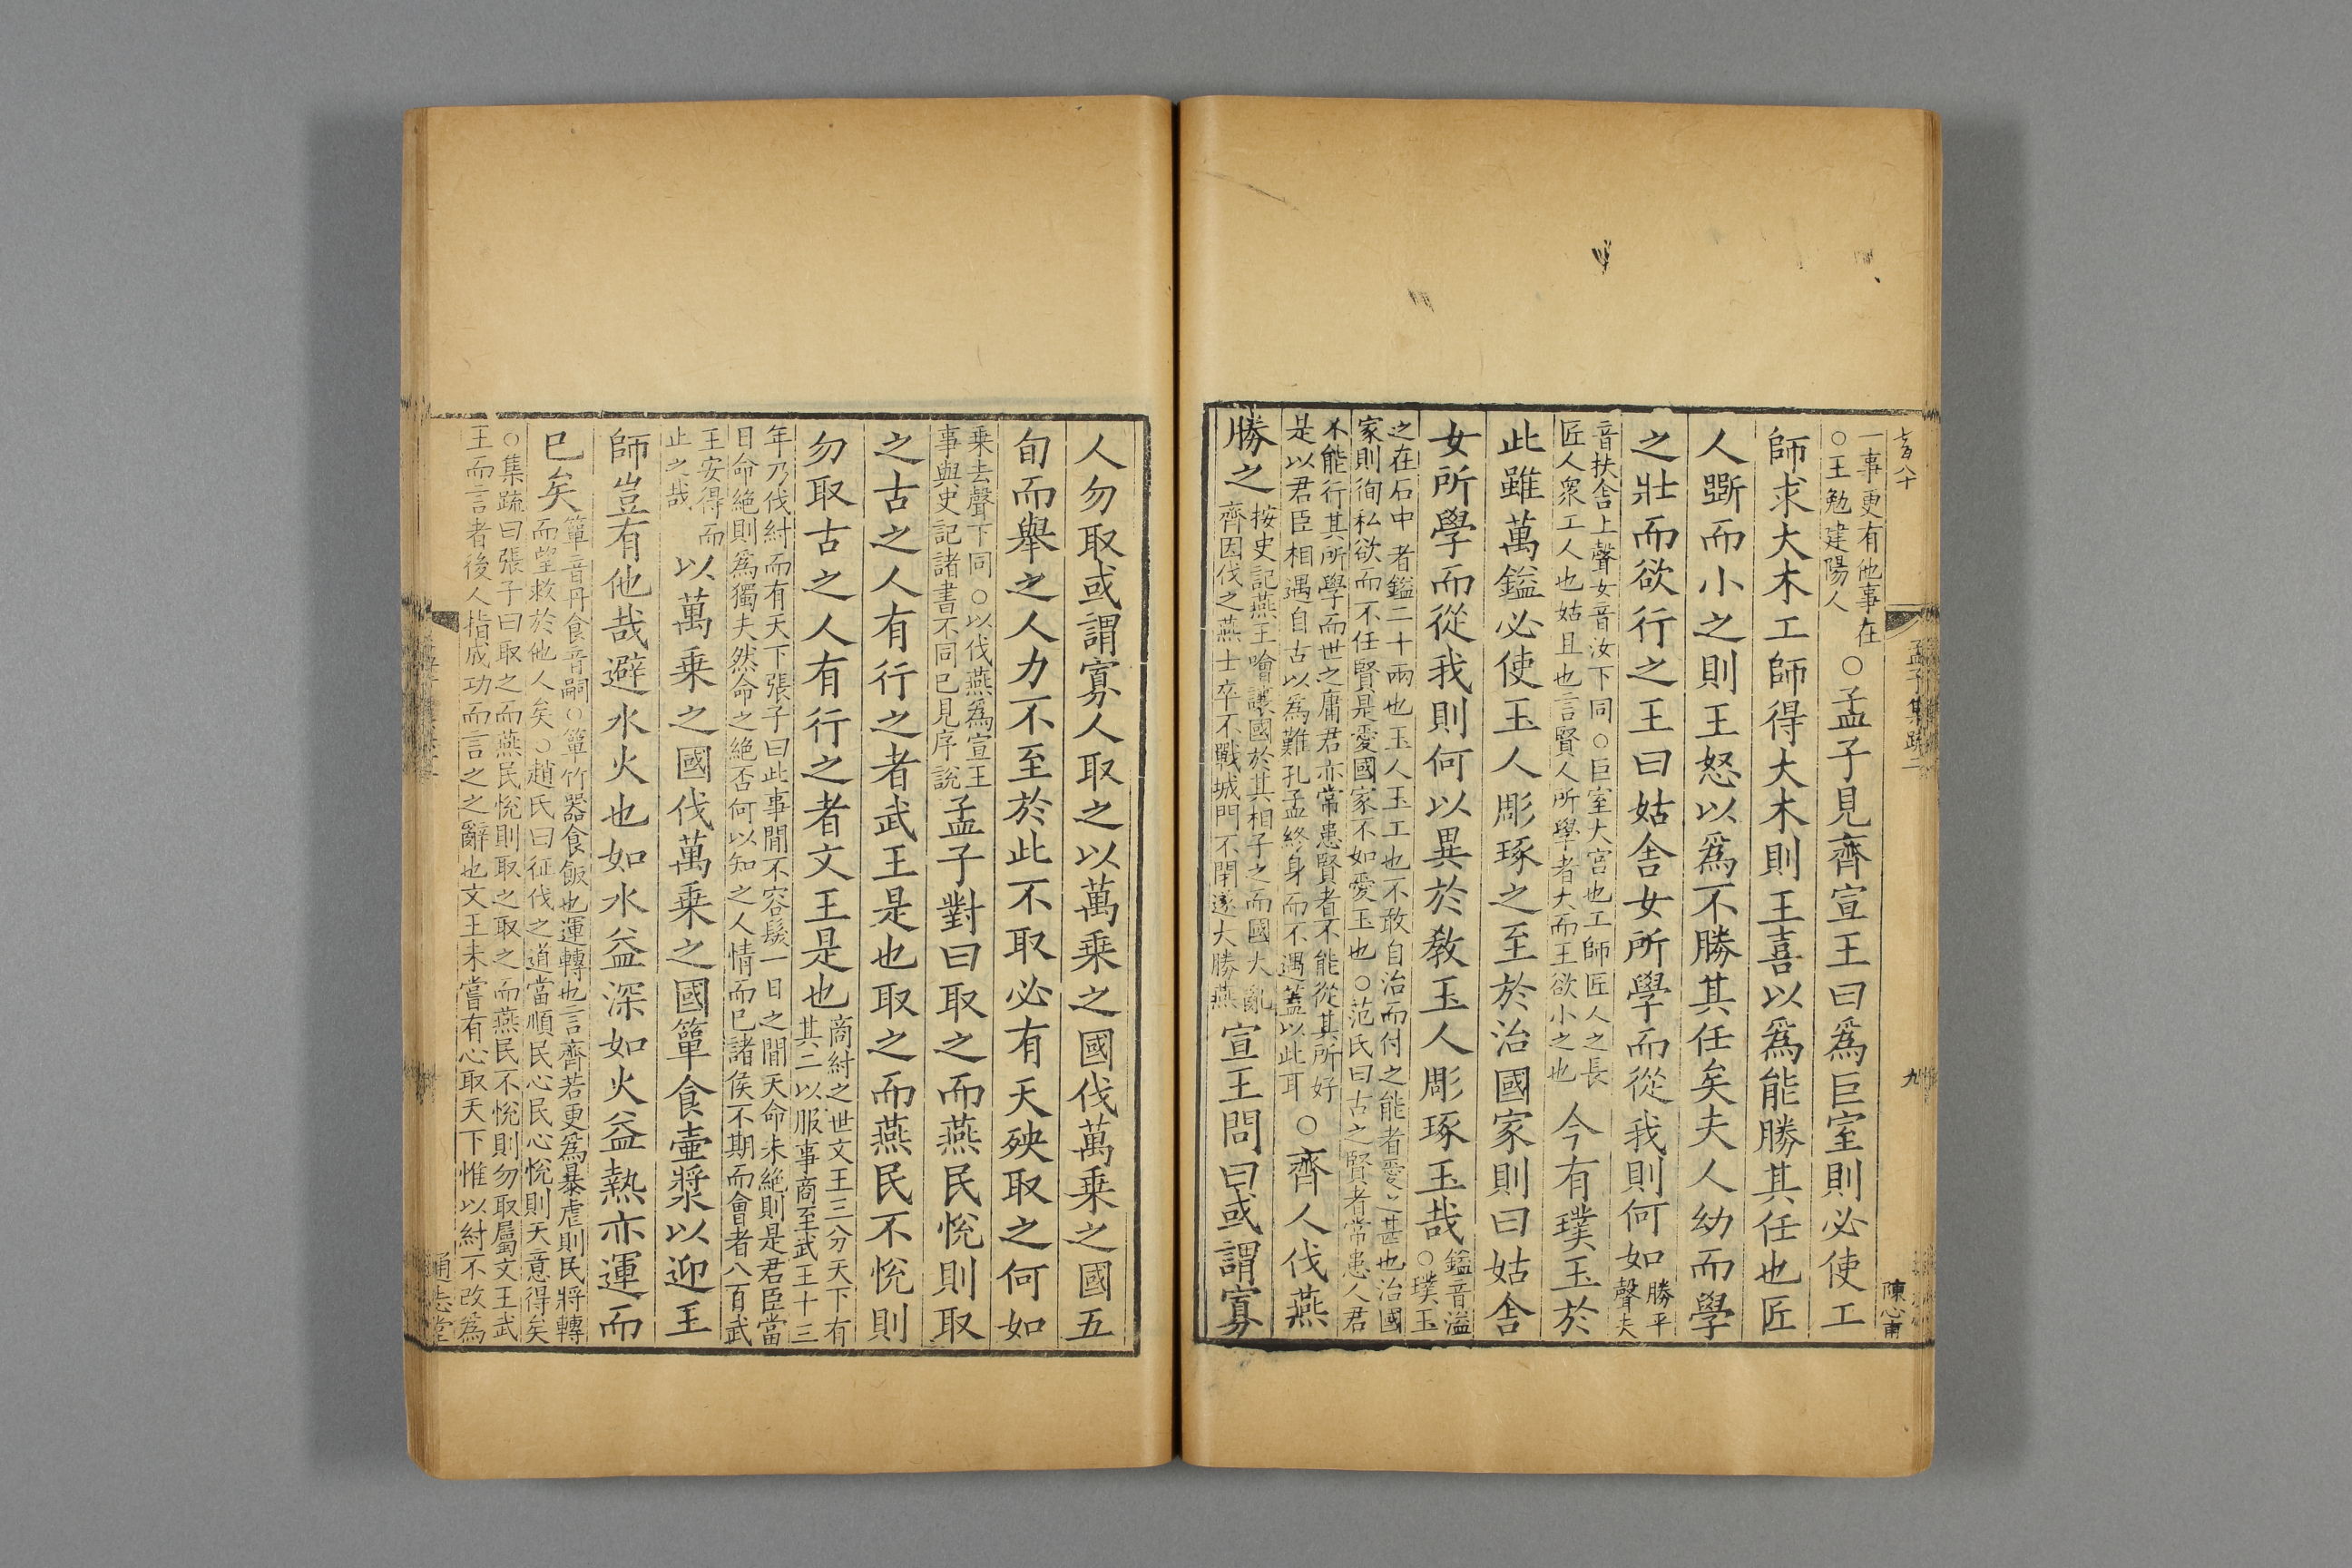 一事更有他事在
○王勉建陽人
○孟子見齊宣王曰爲巨室則必使工
師求大木工師得大木則王喜以爲能勝其任也匠
人斲而小之則王怒以爲不勝其任矣夫人幼而學
之壯而欲行之王曰姑舍女所學而從我則何如
勝平
聲夫
音扶舍上聲女音汝下同○巨室大宮也工師匠人之長
匠人衆工人也姑且也言賢人所學者大而王欲小之也
今有璞玉於
此雖萬鎰必使玉人彫琢之至於治國家則曰姑舍
女所學而從我則何以異於敎玉人彫琢玉哉
鎰音溢
○璞玉
之在石中者鎰二十兩也玉人玉工也不敢自治而付之能者愛之甚也治國
家則徇私欲而不任賢是愛國家不如愛玉也○范氏曰古之賢者常患人君
不能行其所學而世之庸君亦常患賢者不能從其所好
是以君臣相遇自古以爲難孔孟終身而不遇蓋以此耳
○齊人伐燕
勝之
按史記燕王噲讓國於其相子之而國大亂
齊因伐之燕士卒不戰城門不閉遂大勝燕
宣王問曰或謂寡
孟子集疏二
九
陳心甫
人勿取或謂寡人取之以萬乗之國伐萬乗之國五
旬而舉之人力不至於此不取必有天殃取之何如
乗去聲下同○以伐燕爲宣王
事與史記諸書不同已見序說
孟子對曰取之而燕民悅則取
之古之人有行之者武王是也取之而燕民不悅則
勿取古之人有行之者文王是也
商紂之世文王三分天下有
其二以服事商至武王十三
年乃伐紂而有天下張子曰此事間不容髮一日之間天命未絶則是君臣當
日命絶則爲獨夫然命之絶否何以知之人情而已諸侯不期而會者八百武
王安得而
止之哉
以萬乗之國伐萬乗之國簞食壺漿以迎王
師豈有他哉避水火也如水益深如火益熱亦運而
已矣
簞音丹食音嗣○簞竹器食飯也運轉也言齊若更爲暴虐則民將轉
而望救於他人矣○趙氏曰征伐之道當順民心民心悅則天意得矣
○集疏曰張子曰取之而燕民悅則取之取之而燕民不悅則勿取屬文王武
王而言者後人指成功而言之之辭也文王未嘗有心取天下惟以紂不改爲
通志堂